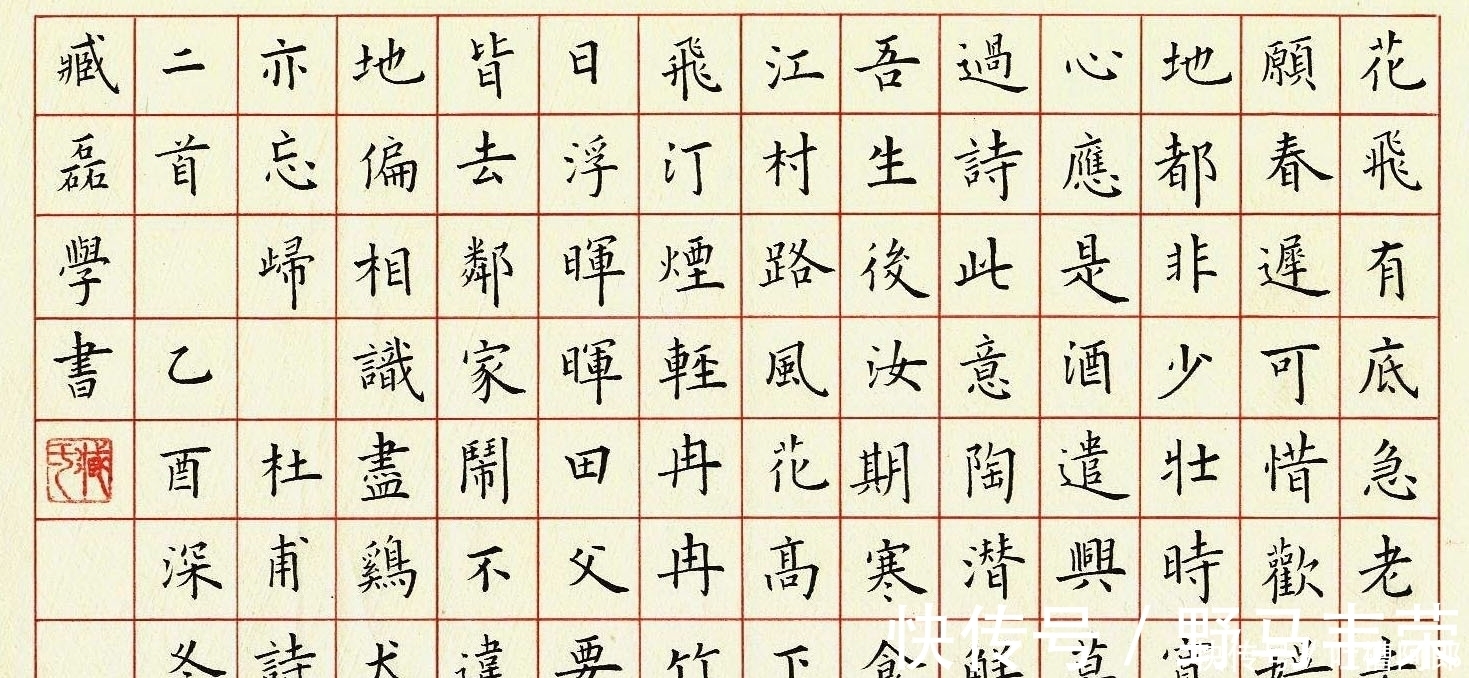 花飛有底急老
願春遲可惜歡
地都非少壯時寬
心應是酒遣興莫
過詩此意陶潛解
吾生後汝期寒食
江村路風花高下
飛汀煙輕冉冉竹
日浮暉暉田父要
皆去鄰家鬧不違
地偏相識盡鷄犬
亦忘歸 杜甫詩
二首 乙酉深冬
臧磊學書
快传号 / 野马韦荣